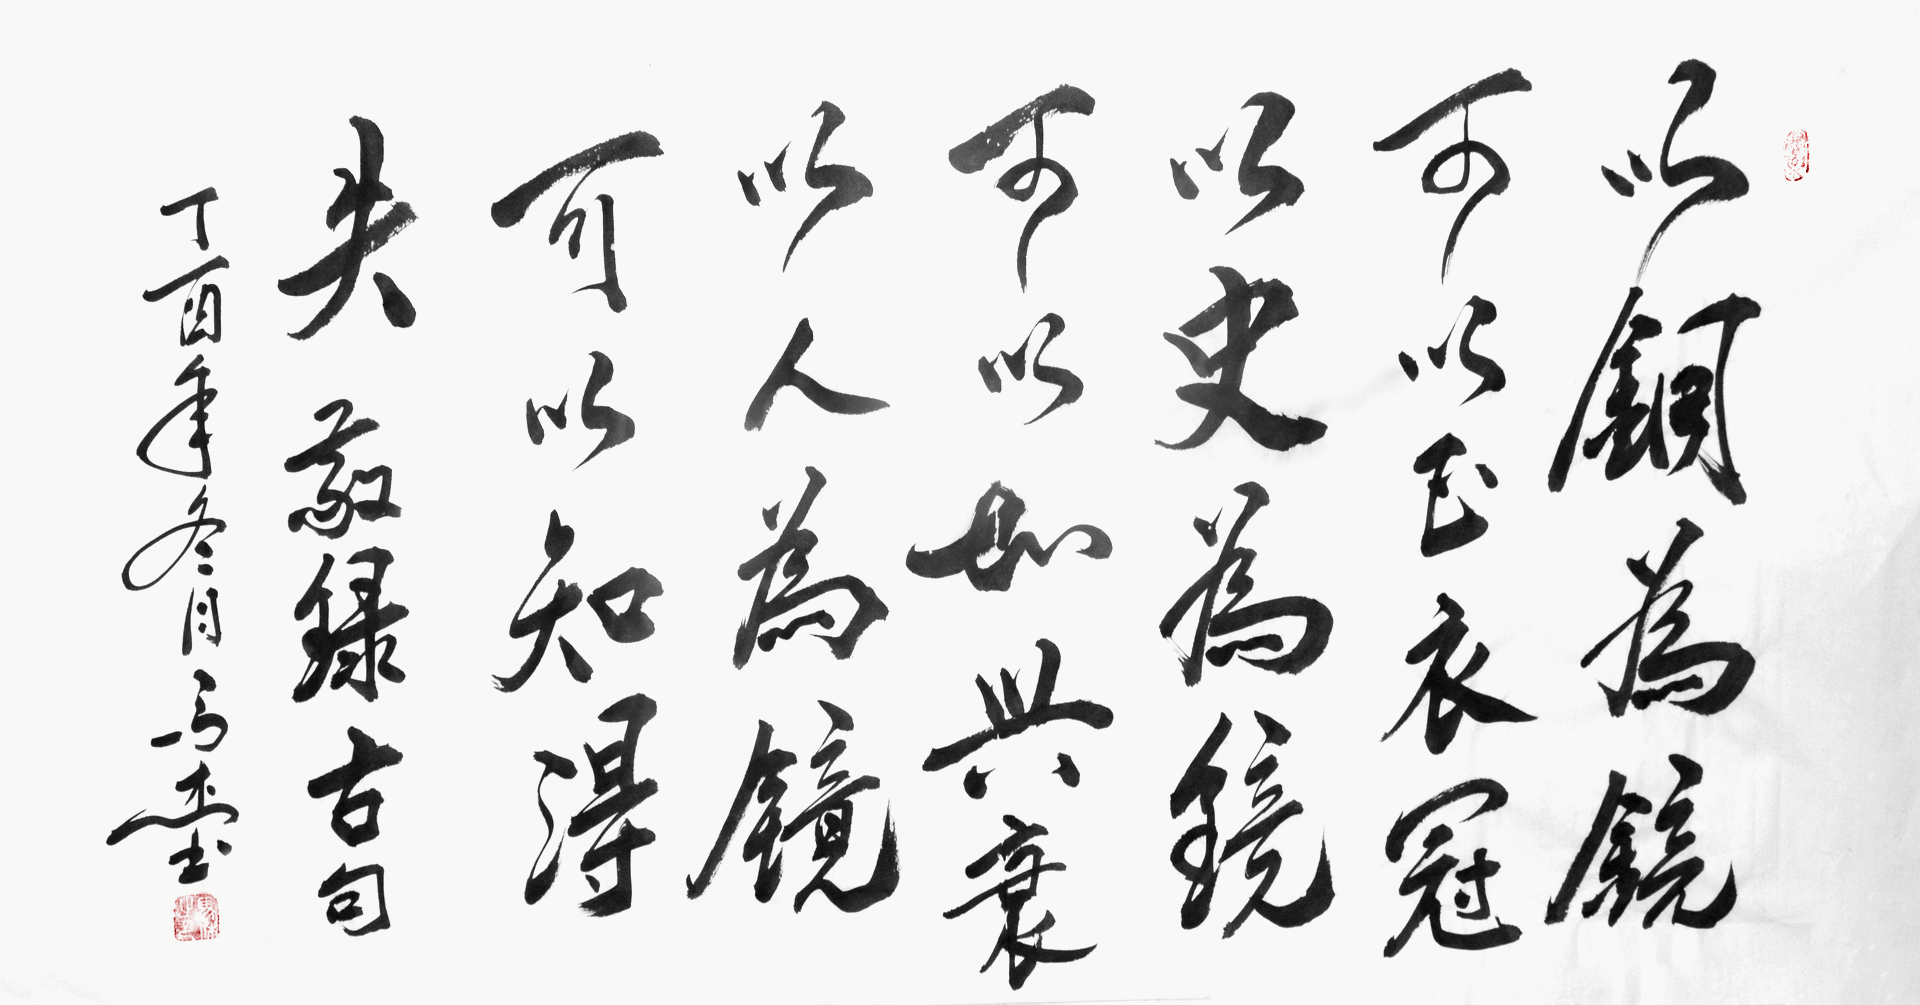 以銅為鏡
可以正衣冠
以史為鏡
可以知興衰
以人為鏡
可以知得
失 敬錄古句
丁酉年冬月馬杰書